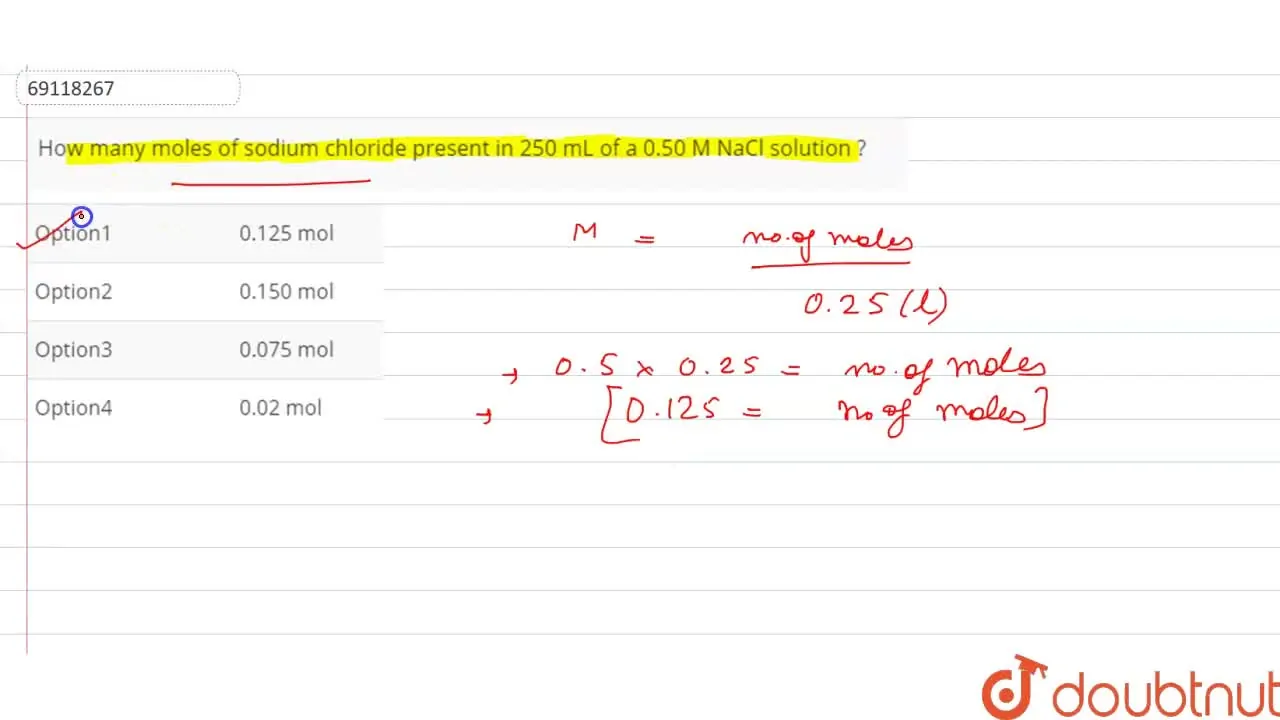 69118267
How many moles of sodium chloride present in 250 mL of a 0.50 M NaCl solution ?
Option1 0.125 mol
Option2 0.150 mol
Option3 0.075 mol
Option4 0.02 mol
M = no. of moles
0.25 (l)
→ 0.5 × 0.25 = no. of moles
→ [0.125 = no of moles]
doubtnut